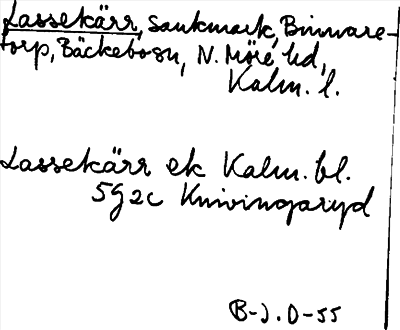 Lassekärr, sankmark, Binnare-
torp, Bäckebo sn, N. Möre hd,
Kalm. l.
Lassekärr ek Kalm. bl.
5G 2c Knivingaryd
B-J. O-55